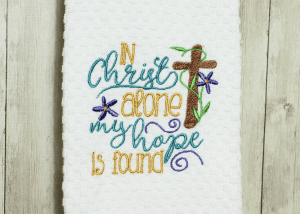 IN
Christ
alone
my hope
IS found